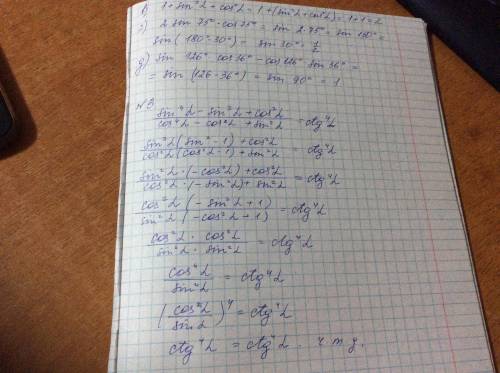 в) 1 + sin² α + cos² α = 1 + (sin² α + cos² α) = 1 + 1 = 2
г) 2 sin 75° · cos 75° = sin 2 · 75° = sin 150° =
sin (180° - 30°) = sin 30° = 1/2
д) sin 126° cos 36° - cos 126° sin 36° =
= sin (126 - 36°) = sin 90° = 1
№3
(sin⁴ α - sin² α + cos² α) / (cos⁴ α - cos² α + sin² α) = ctg⁴ α
(sin² α (sin² - 1) + cos² α) / (cos² α (cos² α - 1) + sin² α) = ctg⁴ α
(sin² α · (-cos² α) + cos² α) / (cos² α · (-sin² α) + sin² α) = ctg⁴ α
(cos² α (-sin² α + 1)) / (sin² α (-cos² α + 1)) = ctg⁴ α
(cos² α · cos² α) / (sin² α · sin² α) = ctg⁴ α
cos⁴ α / sin⁴ α = ctg⁴ α
(cos α / sin α)⁴ = ctg⁴ α
ctg⁴ α = ctg⁴ α. ч т д.